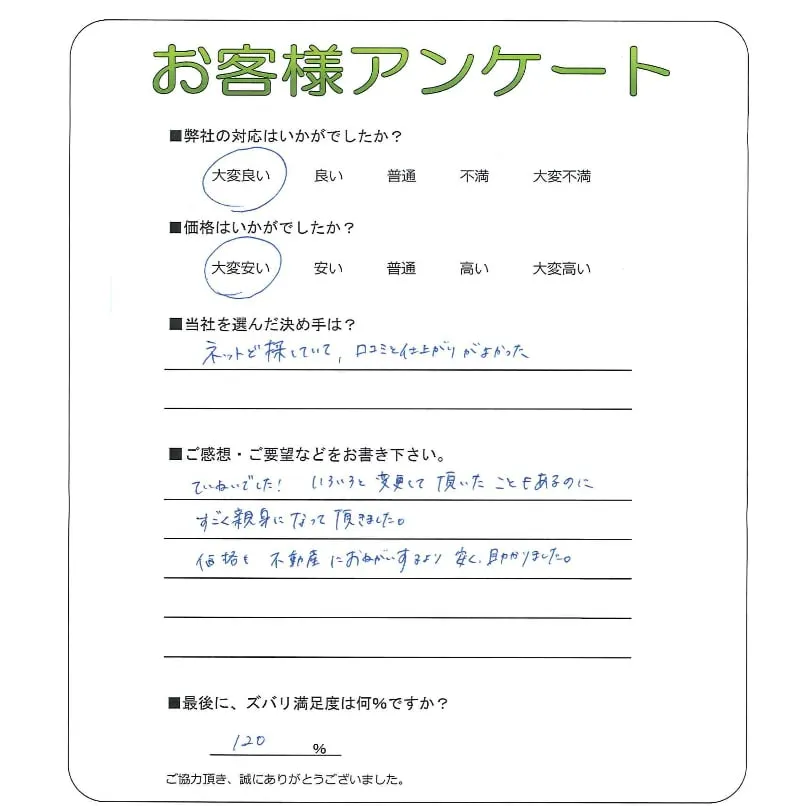 お客様アンケート
■弊社の対応はいかがでしたか？
大変良い 良い 普通 不満 大変不満
■価格はいかがでしたか？
大変安い 安い 普通 高い 大変高い
■当社を選んだ決め手は？
ネットで探していて、口コミと仕上がりがよかった
■ご感想・ご要望などをお書き下さい。
ていねいでした！ いろいろと変更して頂いたこともあるのに
すごく親身になって頂きました。
価格も不動産におねがいするより安く、助かりました。
■最後に、ズバリ満足度は何%ですか？
120 %
ご協力頂き、誠にありがとうございました。